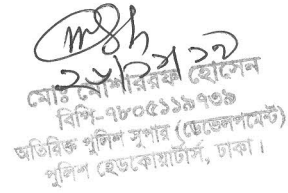 মোঃ মোশাররফ হোসেন
বিপি-৭৮০৫১১৯৭৩৯
অতিরিক্ত পুলিশ সুপার (ডেভেলপমেন্ট)
পুলিশ হেডকোয়ার্টার্স, ঢাকা।